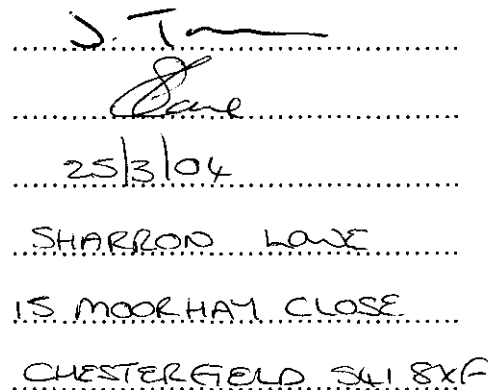 J. T
25/3/04
SHARRON LOWE
15 MOORHAY CLOSE
CHESTERFIELD S41 8XF